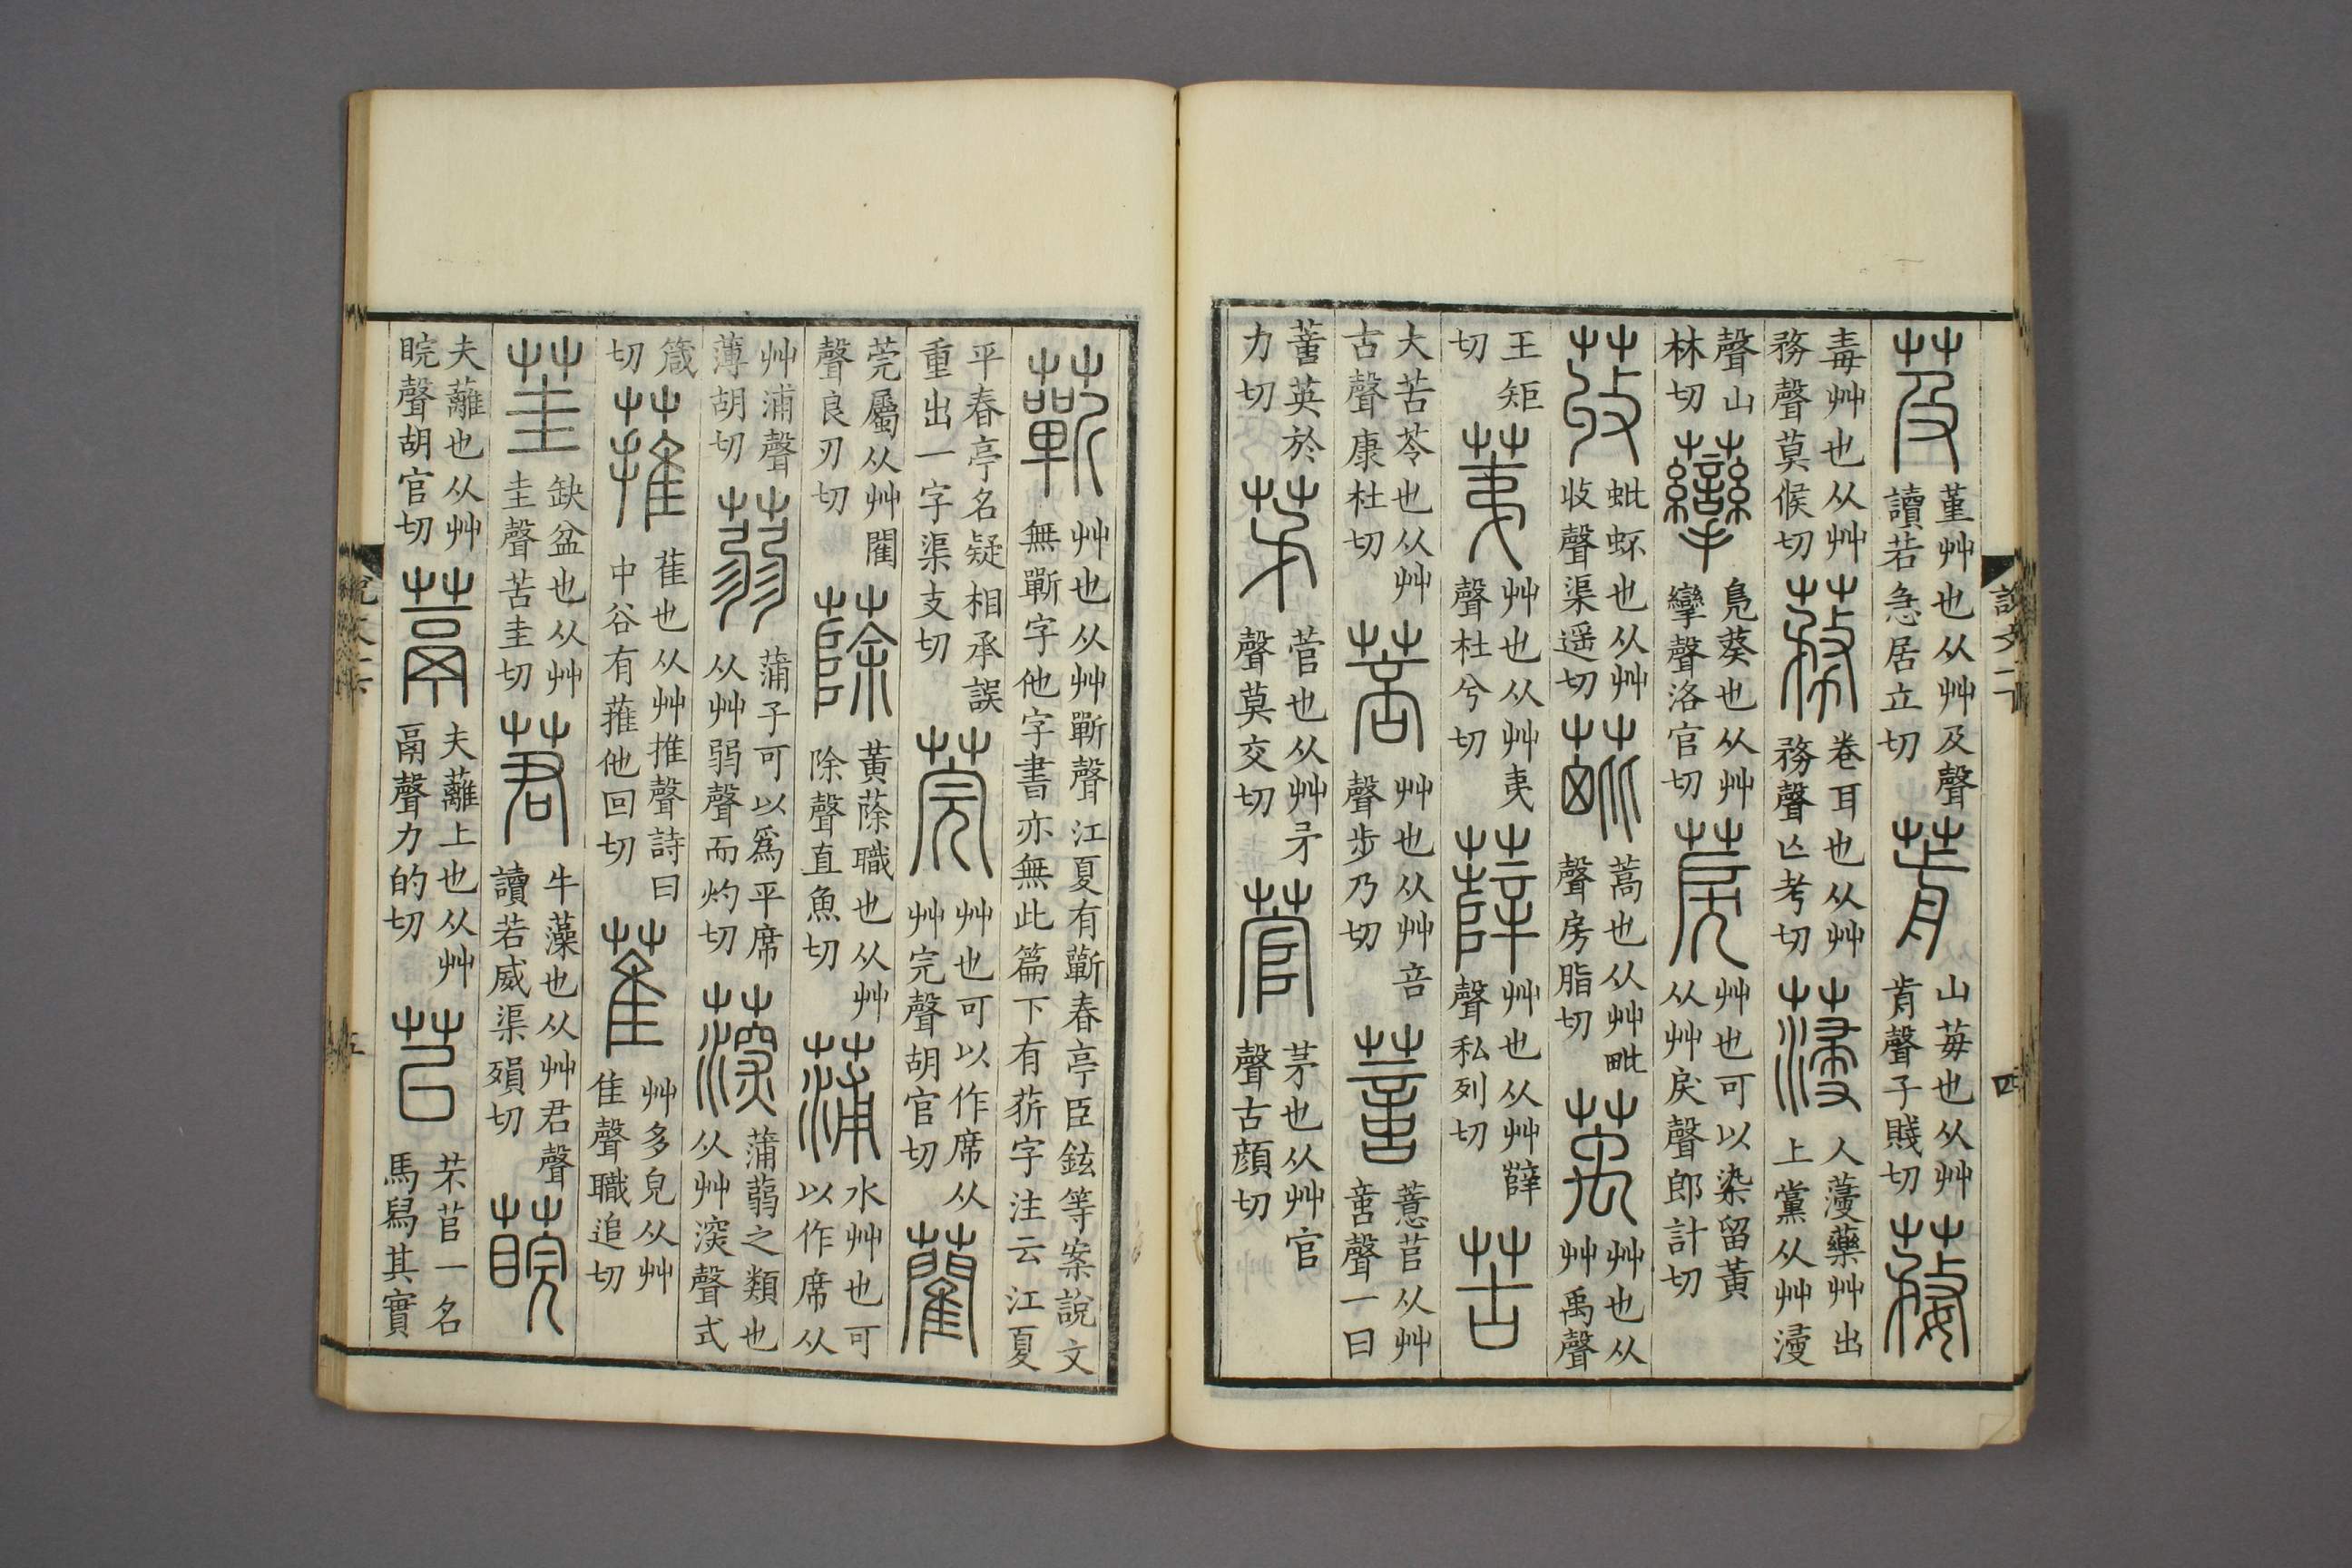 芨堇艸也从艸及聲讀若急居立切葥山莓也从艸歬聲子賤切蓩
毒艸也从艸務聲莫候切蓩卷耳也从艸務聲亡考切薓人薓藥艸出上黨从艸𣹰
聲山林切虊鳧葵也从艸攣聲洛官切䓞艸也可以染留黃从艸戾聲郎計切
荍蚍虾也从艸收聲渠遥切蒿也从艸毗聲房脂切萭艸也从艸禹聲
王矩切荑艸也从艸夷聲杜兮切薛艸也从艸辥聲私列切苦
大苦苓也从艸古聲康杜切菩艸也从艸咅聲步乃切薏苢从艸𠶷聲一曰
英於力切茅菅也从艸矛聲莫交切菅茅也从艸官聲古顏切
說文一下
四
蘄艸也从艸𣃁聲江夏有蘄春亭臣鉉等案說文無𣃁字他字書亦無此篇下有菥字注云江夏
平春亭名疑相承誤重出一字渠支切莞艸也可以作席从艸完聲胡官切藺
莞屬从艸閵聲良刃切蒢黃蒢職也从艸除聲直魚切蒲水艸也可以作席从
艸浦聲薄胡切蒻蒲子可以爲平席从艸弱聲而灼切蒲蒻之類也从艸㴱聲式
箴切蓷萑也从艸推聲詩曰中谷有蓷他回切萑艸多皃从艸隹聲職追切
茥缺盆也从艸圭聲苦圭切莙牛藻也从艸君聲讀若威渠殞切
夫蘺也从艸睆聲胡官切蒚夫蘺上也从艸鬲聲力的切苢芣苢一名馬舄其實
說文一下
五